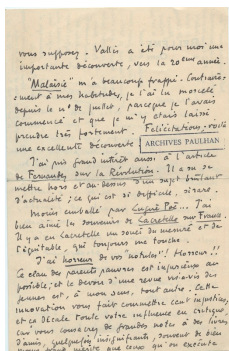 vous supposez. Vallès a été pour moi une
importante découverte, vers la 20ème année.
"Malaisie" m'a beaucoup frappé. Contraire-
-ment à mes habitudes, je l'ai lu morcelé
depuis le no de juillet, parce que je l'avais
commencé et que je m'y étais laissé
prendre très fortement. Félicitations : voilà
une excellente découverte
ARCHIVES PAULHAN
J'ai pris grand intérêt aussi à l'article
de Fernandez sur la Révolution. Il a su se
mettre hors et au-dessus d'un sujet brûlant
d'actualité ; ce qui est si difficile, si rare.
Moins emballé par Lugné Poë... J'ai
bien aimé les souvenirs de Lacretelle sur France.
Il y a en Lacretelle un souci du mesuré et de
l'équitable, qui toujours me touche.
J'ai horreur de vos notules !! Horreur !!
Ce clan des parents pauvres est injurieux au
possible ; et le devoir d'une revue vis-à-vis des
jeunes est, à mon sens, tout autre. Cette
innovation vous fait commettre cent injustices,
et ça décale toute votre influence en critique.
car vous conservez de grandes notes à des livres
d'amis, quelquefois insignifiants, souvent de bien